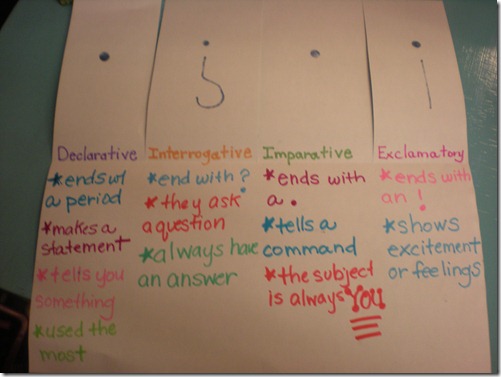 . ? . !
Declarative
*ends w/
a period
*makes a
statement
*tells you
something
*used the
most
Interrogative
*end with ?
*they ask
a question
*always have
an answer
Imparative
*ends with
a .
*tells a
command
*the subject
is always YOU
Exclamatory
*ends with
an !
*shows
excitement
or feelings